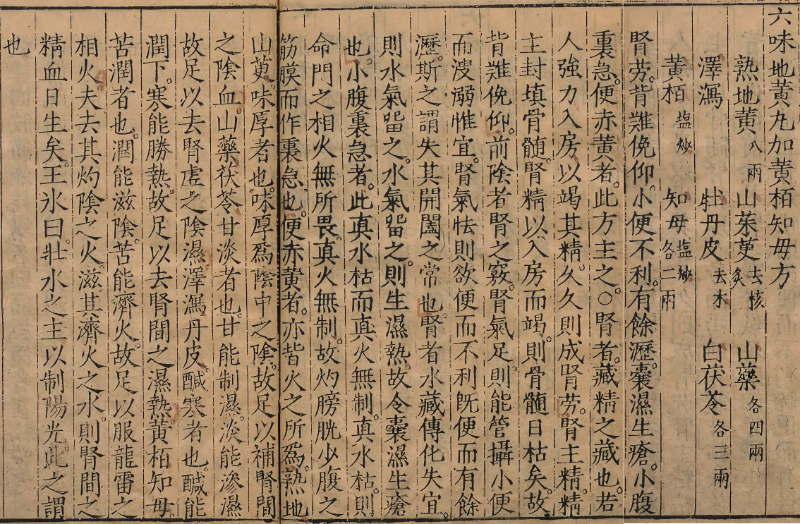 六味地黃丸加黃栢知母方
熟地黃八兩 山茱萸去核炙 山藥各四兩
澤瀉 牡丹皮去木 白茯苓各三兩
黃栢塩炒 知母塩炒各二兩
腎勞背難俛仰小便不利有餘瀝囊濕生瘡小腹
裏急便赤黃者此方主之○腎者藏精之藏也若
人強力入房以竭其精久久則成腎勞腎主精精
主封填骨髓腎精以入房而竭則骨髓日枯矣故
背難俛仰前陰者腎之竅腎氣足則能管攝小便
而溲溺惟宜腎氣怯則欲便而不利旣便而有餘
瀝斯之謂失其開闔之常也腎者水藏傳化失宜
則水氣畱之水氣畱之則生濕熱故令囊濕生瘡
也小腹裏急者此真水枯而真火無制真水枯則
命門之相火無所畏真火無制故灼膀胱少腹之
筋膜而作裏急也便赤黃者亦皆火之所爲熟地
山萸味厚者也味厚爲陰中之陰故足以補腎間
之陰血山藥茯苓甘淡者也甘能制濕淡能滲濕
故足以去腎虛之陰濕澤瀉丹皮鹹寒者也鹹能
潤下寒能勝熱故足以去腎間之濕熱黃栢知母
苦潤者也潤能滋陰苦能濟火故足以服龍雷之
相火夫去其灼陰之火滋其濟火之水則腎間之
精血日生矣王氷曰壯水之主以制陽光此之謂
也